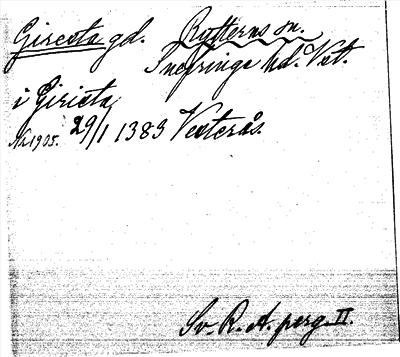 Giresta gd. Rytterns sn.
Snefringe hd. Vstm.
i Girista
N:r 1905. 29/1 1383 Vesterås.
Sv. R. A. perg. II.